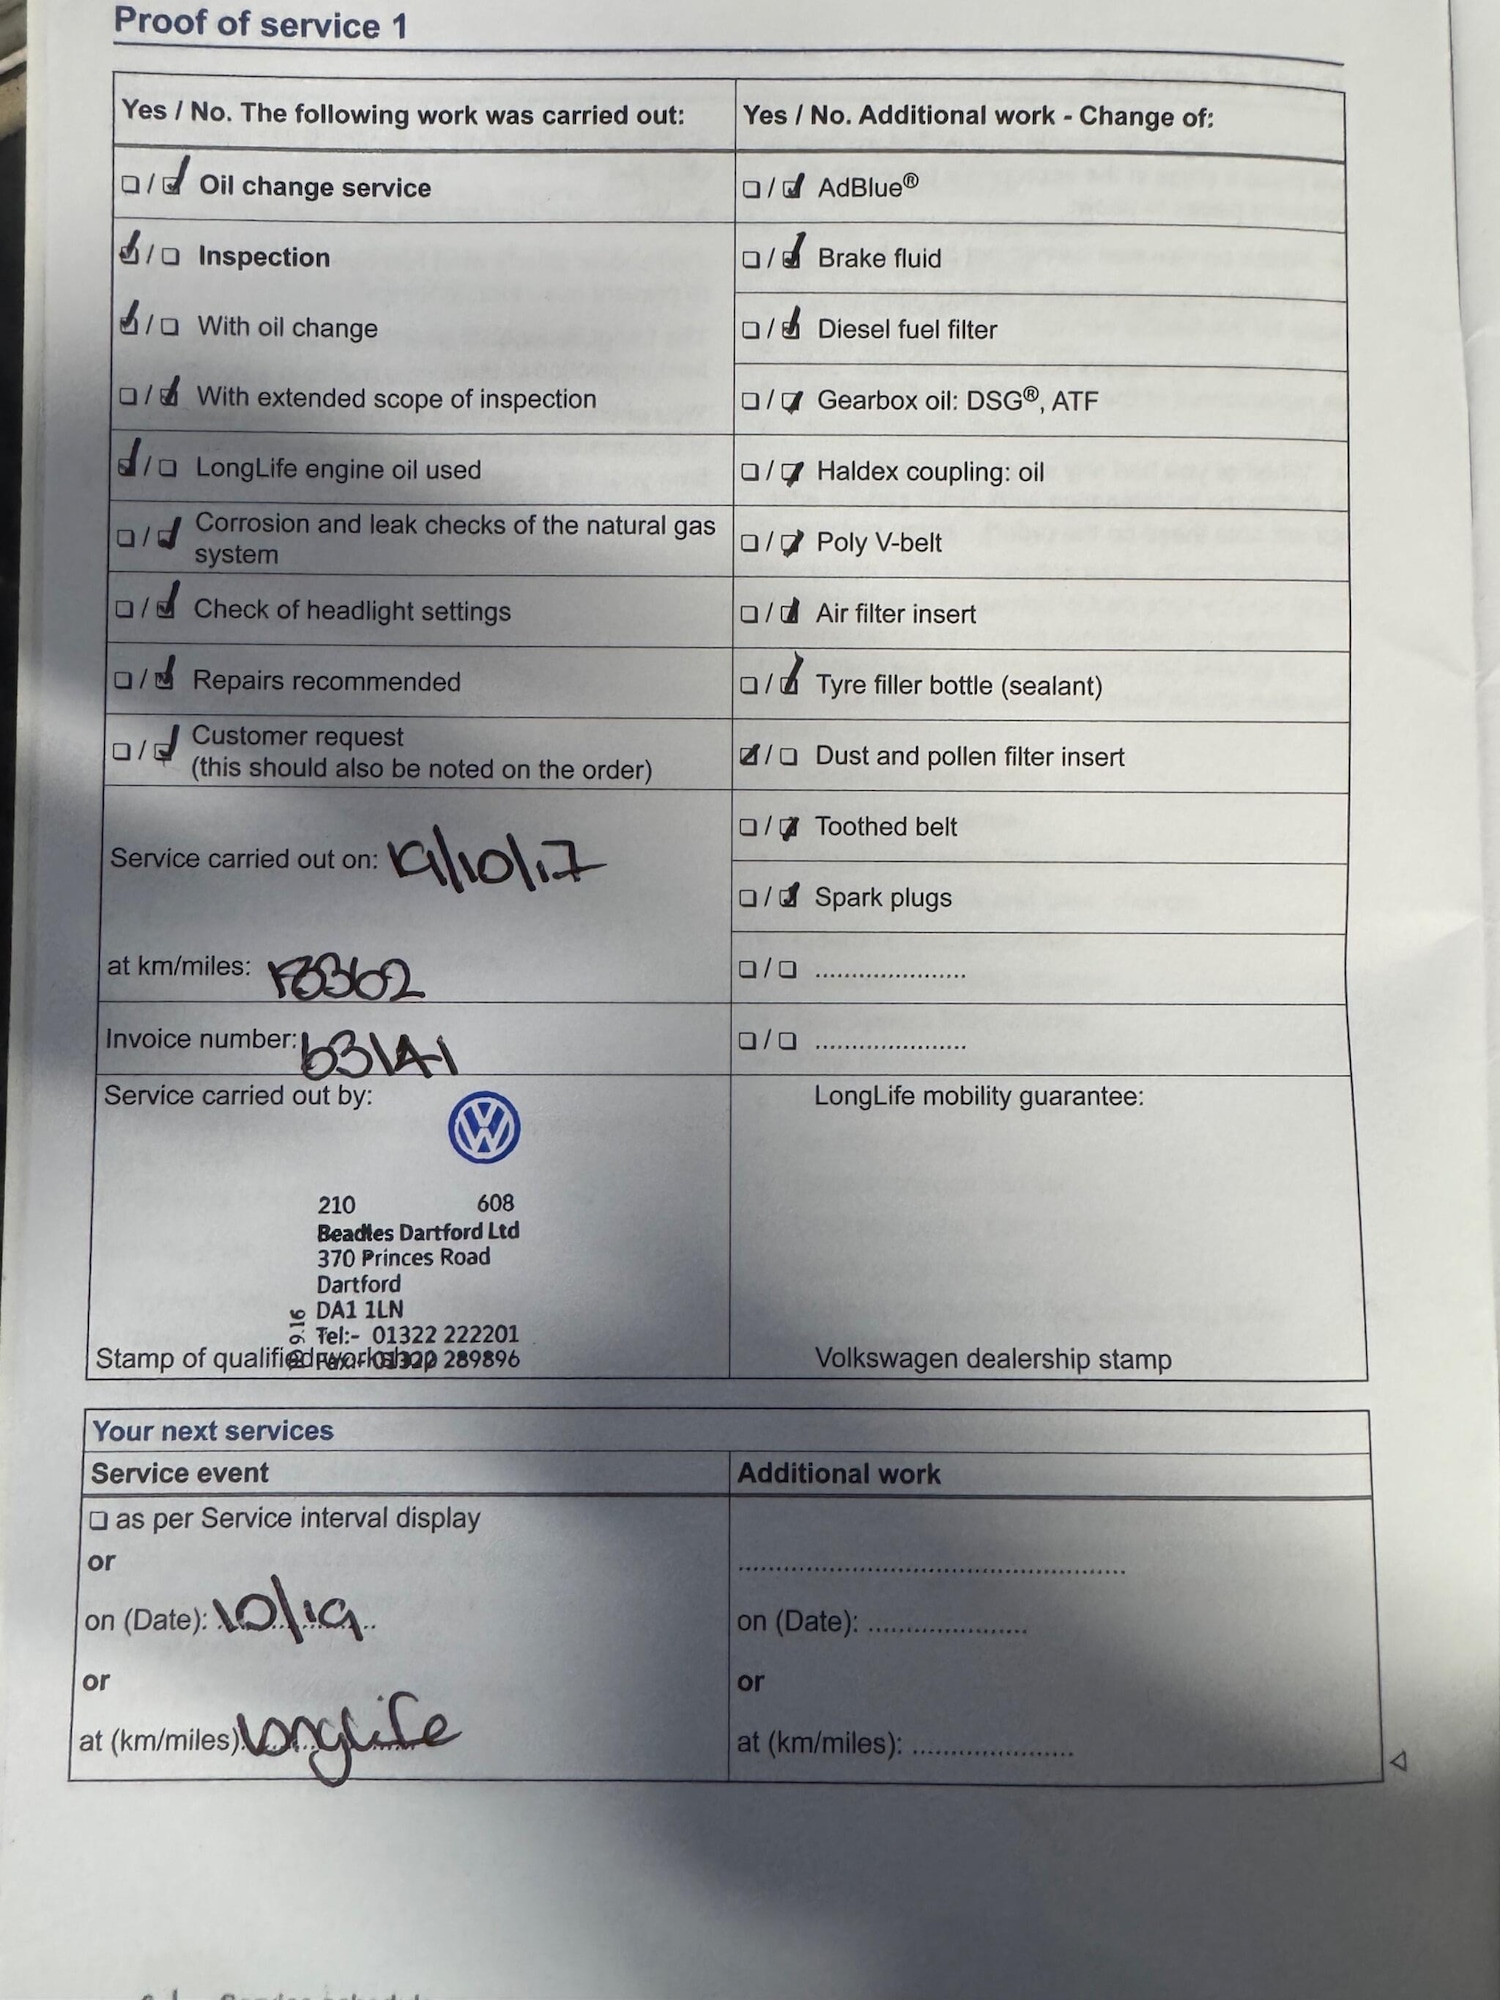 Proof of service 1
Yes / No. The following work was carried out:
☐ / ☑ Oil change service
☑ / ☐ Inspection
☑ / ☐ With oil change
☐ / ☑ With extended scope of inspection
☑ / ☐ LongLife engine oil used
☐ / ☑ Corrosion and leak checks of the natural gas
system
☐ / ☑ Check of headlight settings
☐ / ☑ Repairs recommended
☐ / ☑ Customer request
(this should also be noted on the order)
Service carried out on: 19/10/17
at km/miles: 18362
Invoice number: 63141
Yes / No. Additional work - Change of:
☐ / ☑ AdBlue®
☐ / ☑ Brake fluid
☐ / ☑ Diesel fuel filter
☐ / ☑ Gearbox oil: DSG®, ATF
☐ / ☑ Haldex coupling: oil
☐ / ☑ Poly V-belt
☐ / ☑ Air filter insert
☐ / ☑ Tyre filler bottle (sealant)
☑ / ☐ Dust and pollen filter insert
☐ / ☑ Toothed belt
☐ / ☑ Spark plugs
☐ / ☐ .....................
☐ / ☐ .....................
Service carried out by:
VW
210 608
Beadles Dartford Ltd
370 Princes Road
Dartford
DA1 1LN
Tel:- 01322 222201
Fax:- 01322 289896
9.16
Stamp of qualified workshop
LongLife mobility guarantee:
Volkswagen dealership stamp
Your next services
Service event
☐ as per Service interval display
or
on (Date): 10/19
or
at (km/miles): Longlife
Additional work
.....................
on (Date): .....................
or
at (km/miles): .....................